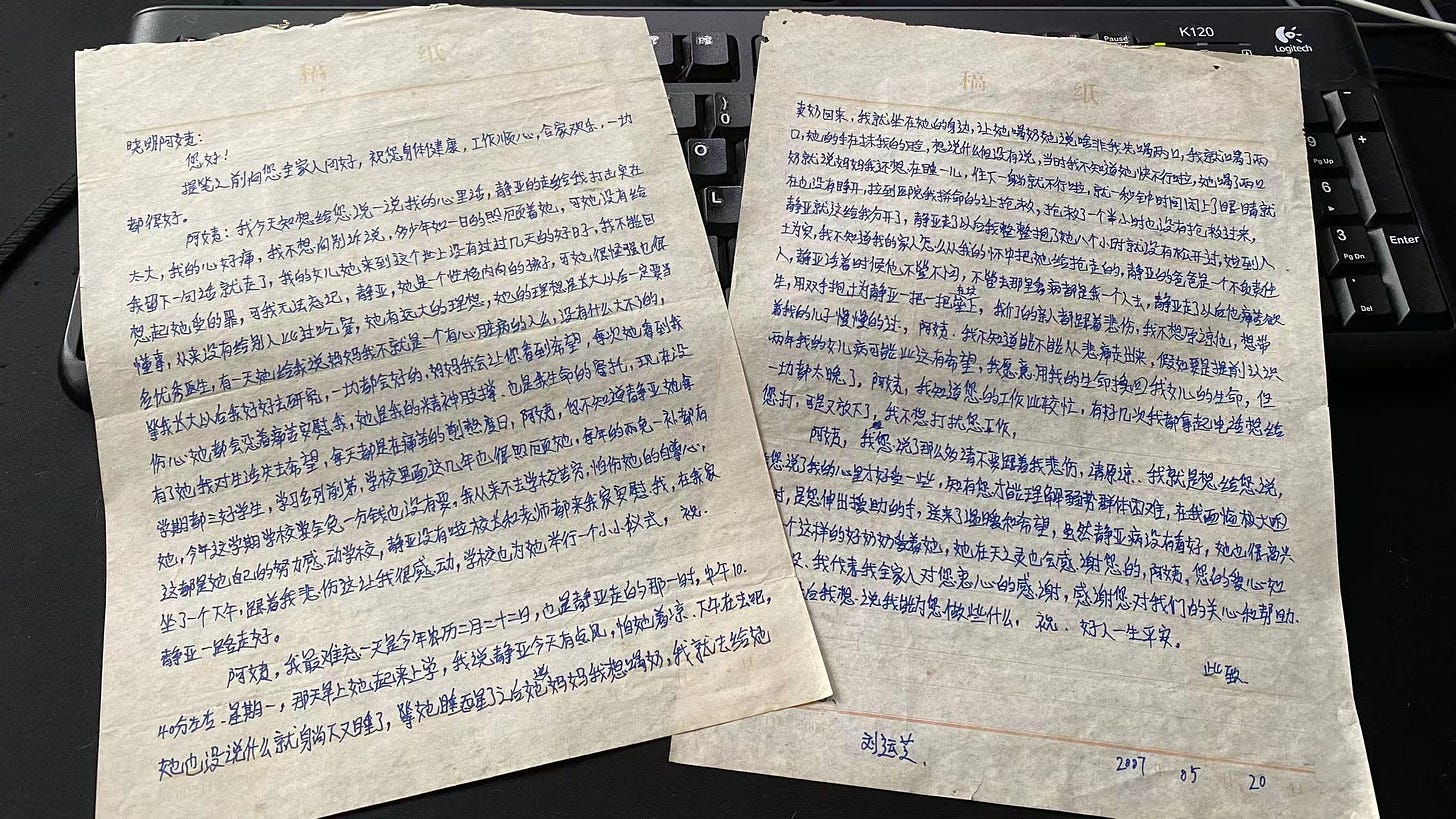 稿 纸
晓明阿姨：
您好！
提笔之前向您全家人问好，祝您身体健康，工作顺心，合家欢乐，一切
都很好。
阿姨：我今天知想给您说一说我的心里话，静亚的走给我打击实在
太大，我的心好痛，我不想向别诉说，多少年如一日的照顾着她，可她没有给
我留下一句话就走了，我的女儿她来到这个世上没有过过几天的好日子，我不能回
想起她受的罪，可我无法忘记，静亚，她是个性格内向的孩子，可她很坚强也很
懂事，从来没有给别人比过吃穿，她有远大的理想，她的理想是长大以后一定要当
名优秀医生，有一天她给我说妈妈我不就是一个有心脏病的人么，没有什么大不了的，
等我长大以后我好好去研究，一切都会好的，妈妈我会让你看到希望，每次她看到我
伤心她都会忍着痛苦安慰我，她是我的精神肢撑，也是我生命的寄托，现在没
有了她，我对生活失去希望，每天都是在痛苦的煎熬度日，阿姨，您不知道静亚她每
学期都三好学生，学习名列前茅，学校里面这几年也很照顾她，每年的两免一补都有
她，今年这学期学校要全免一分钱也没有要。我从来不去学校苦穷，怕伤她的自尊心，
这都是她自己的努力感动学校，静亚没有啦校长和老师都来我家安慰我，在我家
坐了一个下午，跟着我悲伤这让我很感动，学校也为她举行一个小小仪式，祝、
静亚一路走好。
阿姨，我最难忘一天是今年农历二月二十二日，也是静亚走的那一时，中午10.
40分左右、星期一，那天早上她起来上学，我说静亚今天有点风，怕她着凉、下午在去吧，
她也没说什么就身尚下又睡了，等她睡西星了之后她说妈妈我想喝奶，我就去给她
稿 纸
卖奶回来，我就坐在她的身边，让她喝奶她说啥非我先喝两口，我就喝了两
口，她的手在抹我的脸，想说什么但没有说，当时我不知道她快不行啦，她喝了两口
奶就说妈妈我还想在睡一儿，住下一躺就不行啦，就一秒钟时间闭上了眼睛就
在也没有睁开，拉到医院我拼命的让抢救，抢救了个半小时也没有抢救过来，
静亚就这给我分开了，静亚走了以后我整整抱了她八个小时就没有松开过，她到入
土为安，我不知道我的家人怎么从我的怀中把她给抢走的，静亚的爸爸是一个不负责任
人，静亚活着时候他不管不问，不管去那里看病都是我一个人去，静亚走了以后他痛苦欲
生，用双手把土为静亚一把一把垒上，我们的亲人都跟着悲伤，我不想原谅他，想带
着我的儿子慢慢的过，阿姨、我不知道能不能从悲痛走出来，假如要是提前认识
两年我的女儿病可能业这有希望，我愿意用我的生命换回我女儿的生命，但
一切都太晚了，阿姨，我知道您的工作比较忙，有好几次我都拿起电话想给
您打，可是又放下了，我不想打扰您工作，
阿姨，我您说了那么多请不要跟着我悲伤，请原谅、我就是想给您说，
您说了我的心里才好受一些，知有您才能理解弱势群体困难，在我面临极大困
时，是您伸出援助的手，送来了温暖和希望，虽然静亚病没有看好，她也很高兴
个这样的好奶奶爱着她，她在天之灵也会感谢您的，阿姨，您的爱心如
、我代表我全家人对您衷心的感谢，感谢您对我们的关心和帮助、
后我想说我能为您做些什么，祝、好人一生平安。
此致
刘运兰、
2007 05 20
K120
Logitech
Pause
9
Pg Up
6
3
Pg Dn
Enter
Del